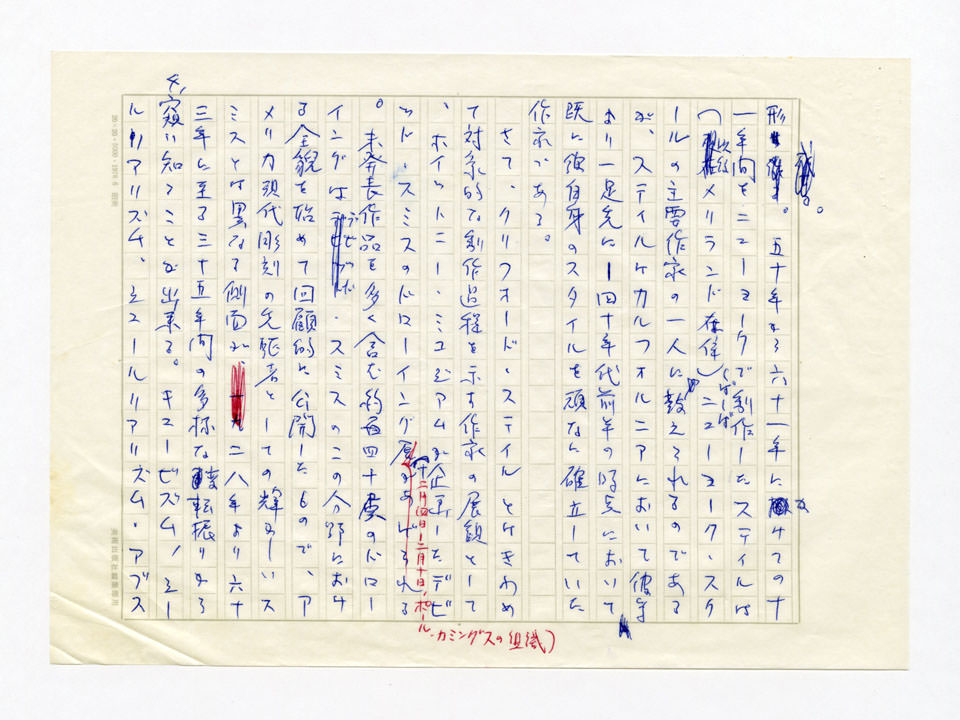 形。五十年から六十一年にかけての十
一年間をニューヨークで創作したスティルは
(以後メリランド在住)しばしばニューヨーク・スク
ールの主要作家の一人に数えられるのである
が、スティルはカルフォルニアにおいて彼等
より一足先に四十年代前半の時点において
既に彼自身のスタイルを頑なに確立していた
作家である。
さて、クリフォード・スティルとはきわめ
て対象的な創作過程を示す作家の展観として
、ホイットニー・ミュジアムが企画したデビ
ッド・スミスのドローイング展があげられる
(十二月四日−二月十日、ポール・カミングスの組織)
。未発表作品を多く含む約百四十点のドロー
イングはデビッド・スミスのこの分野におけ
る全貌を始めて回顧的に公開したもので、ア
メリカ現代彫刻の先駆者としての輝かしいス
ミスとは異なる側面が、二八年より六十
三年に至る三十五年間の多様な転振りから
も窺い知ることが出来る。キュービズム、シュー
ルリアリズム、
20×20=5000
美術出版社編集部用